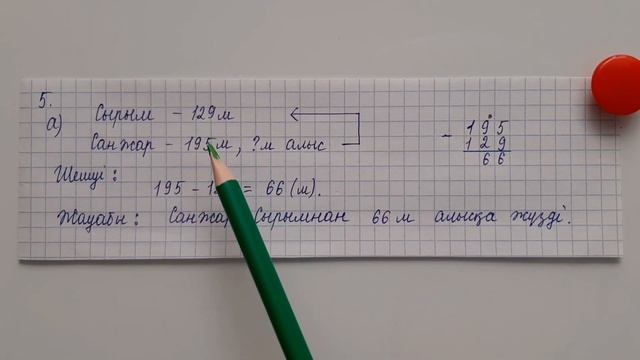 5.
а) Сырым – 129м
Санжар – 195м, ?м алыс
Шешуі:
195 – 1 = 66 (м).
Жауабы: Санжар Сырымнан 66 м алысқа жүзді.
– 195
129
66